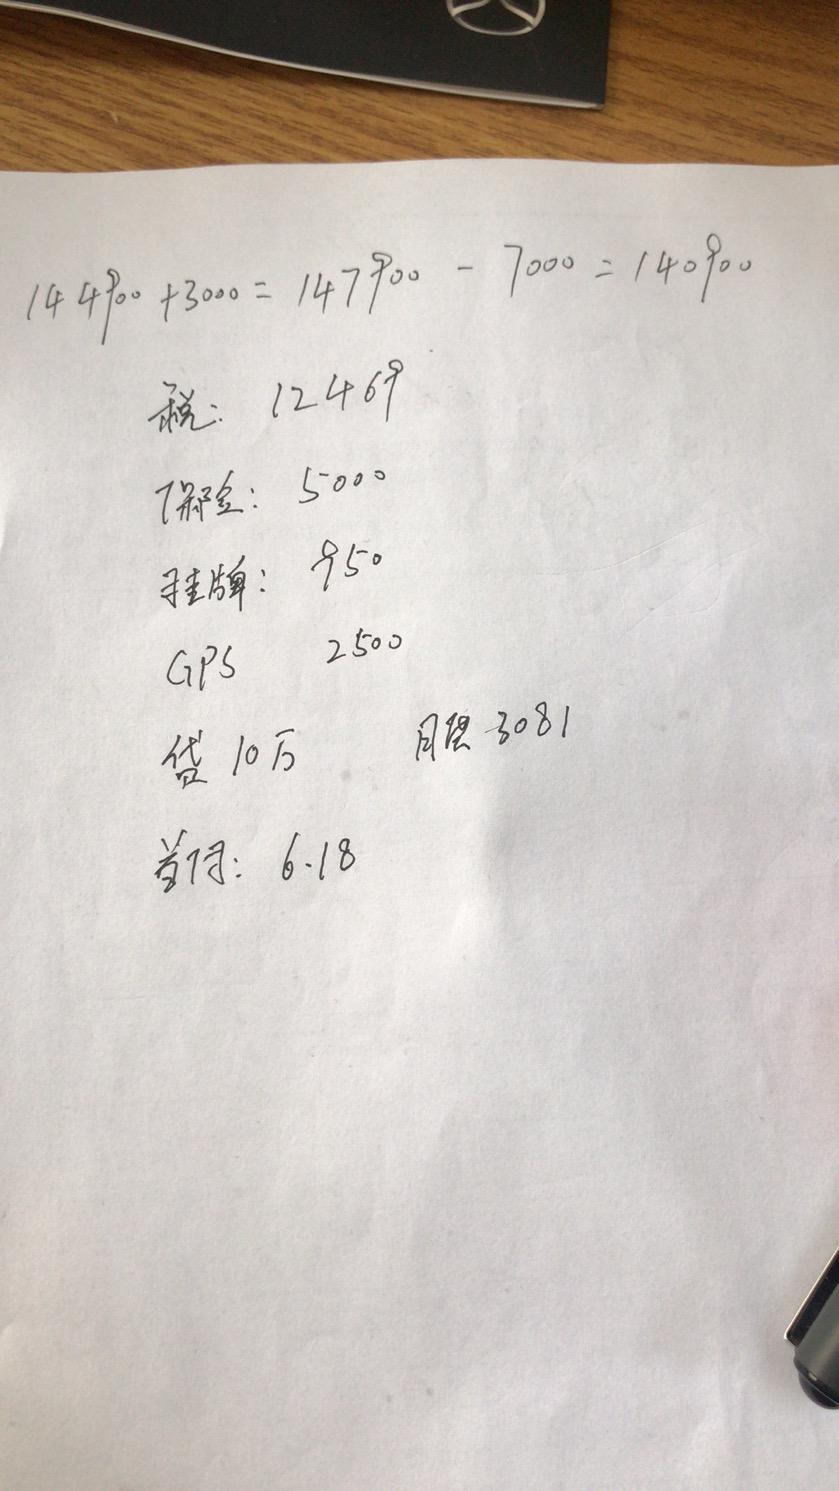 144900+3000=147900-7000=140900
税: 12469
保险: 5000
挂牌: 950
GPS 2500
贷10万 月供3081
首付: 6.18